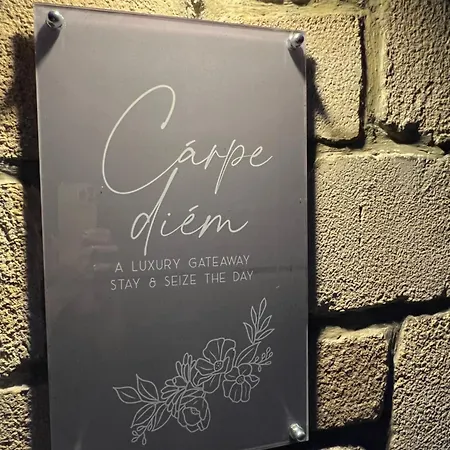 Cárpe
diém
A LUXURY GATEAWAY
STAY & SEIZE THE DAY